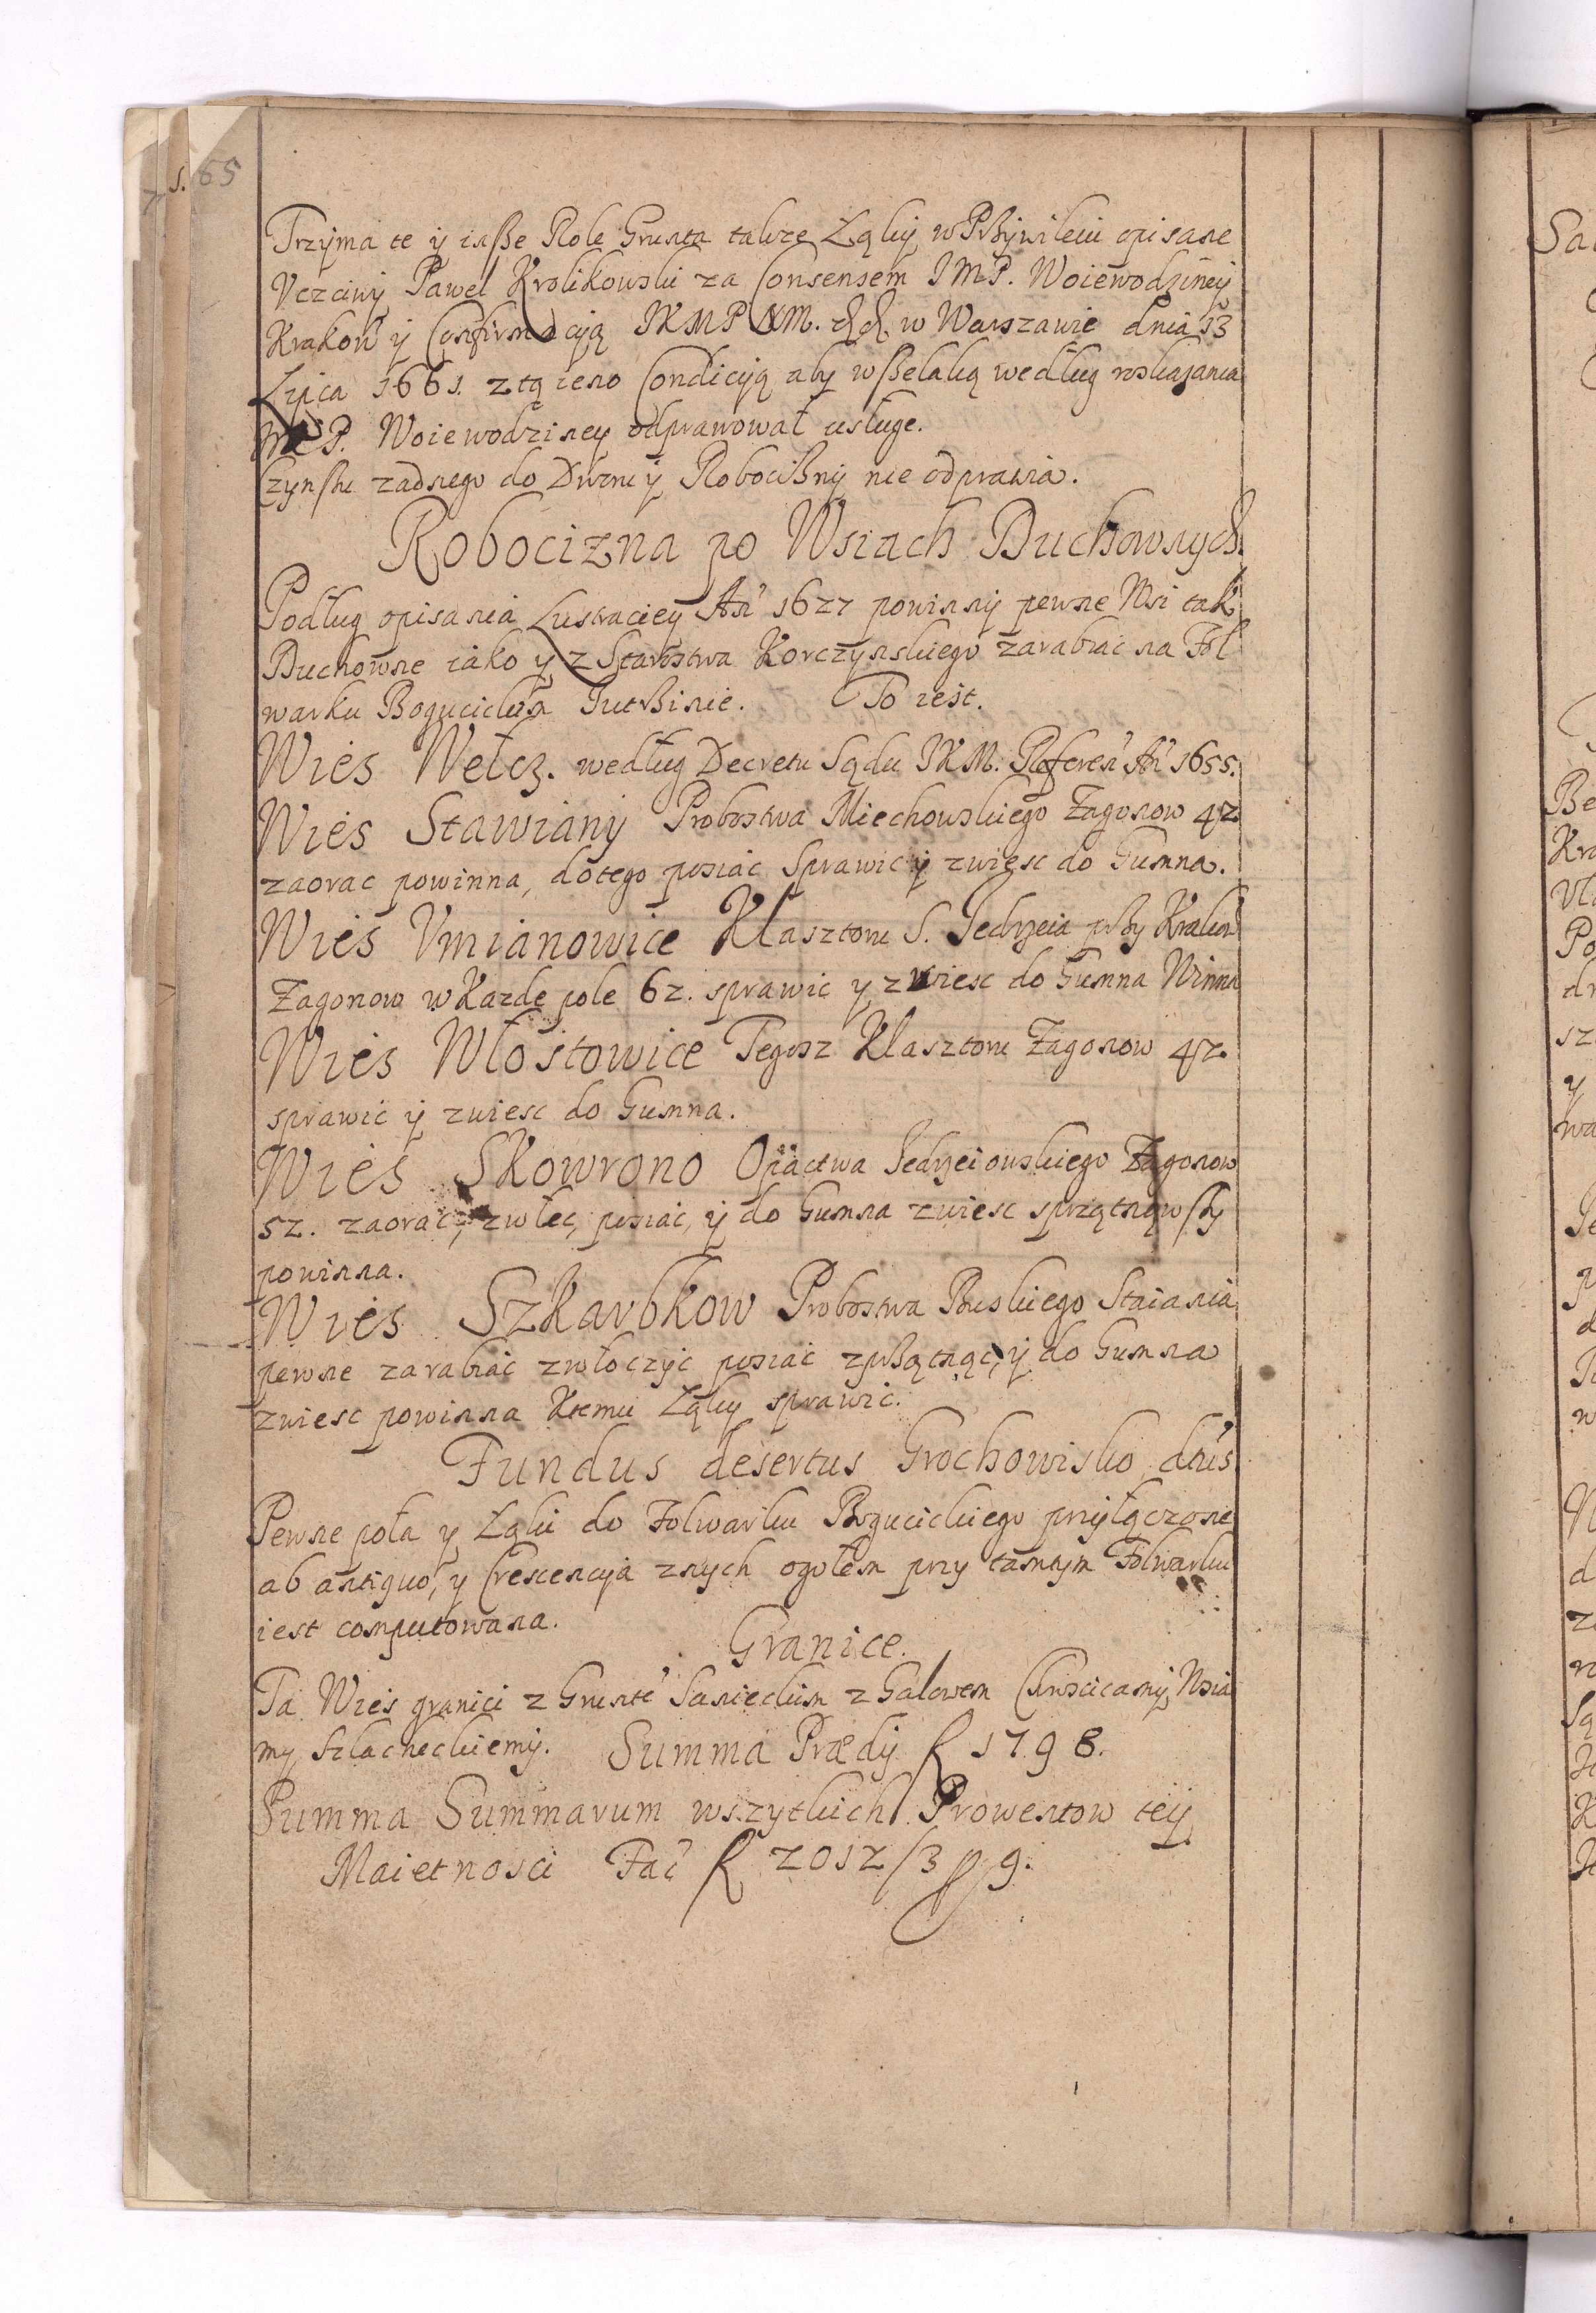 s. 65
Trzyma te y insße Role Grunta takze Łąky w Przywileiu opisane
Vczciwy Paweł Krolikowski za Consensem IMP. Woiewodziney
Krakow y Confirmacyą IKMP NM. dd. w Warszawie dnia 13
Lipca 1661. z tą ieno Condicyą aby wßelaką według roskazania
P. Woiewodziney odprawował usługe.
Czynßu zadnego do Dwru y Robocizny nie odprawia.
Robocizna po Wsiach Duchownych.
Podług opisania Lustraciey An̄ 1627 powinny pewne Wsi tak
Duchowne iako y z Starostwa Korczynskiego zarabiac na Fol
warku Bogucickim Jutrzinie. To iest.
Wies Wełcz. według Decretu Sądu IKM. Referen̄ An̄ 1655.
Wies Stawiany Probostwa Miechowskiego Zagonow 42.
zaorac powinna, do tego posiac sprawic y zwiesc do Gumna.
Wies Vmianowice Klasztoru S. Jedrzeia przy Krakow
Zagonow w Kazde pole 62. sprawic y zwiesc do Gumna Winna
Wies Włostowice Tegosz Klasztoru Zagonow 42.
sprawic y zwiesc do Gumna.
Wies Skowrono Opactwa Jedrzeiowskiego Zagonow
52. zaorac, zwłec, posiac, y do Gumna zwiesc sprzątnąwßy
powinna.
Wies Szkarbkow Probostwa Buskiego Staiania
pewne zarabiac zwłoczyc posiac zprzątnąc, y do Gumna
zwiesc powinna Ktemu Łąky sprawic.
Fundus desertus Grochowisko dt̄us
Pewne pola y Łąki do Folwarku Bogucickiego przyłączone
ab antiquo, y Crescencya znych ogołem przy tamtym Folwarku
iest computowana.
Granice.
Ta Wies granici z Grunte Sanieckim z Galowem Chroscicamy, Wsia
my szlacheckiemy. Summa Prædy f 1798.
Summa Summarum wszytkich Prowentow tey
Maietnosci Fac̄ f 2012/3 9.